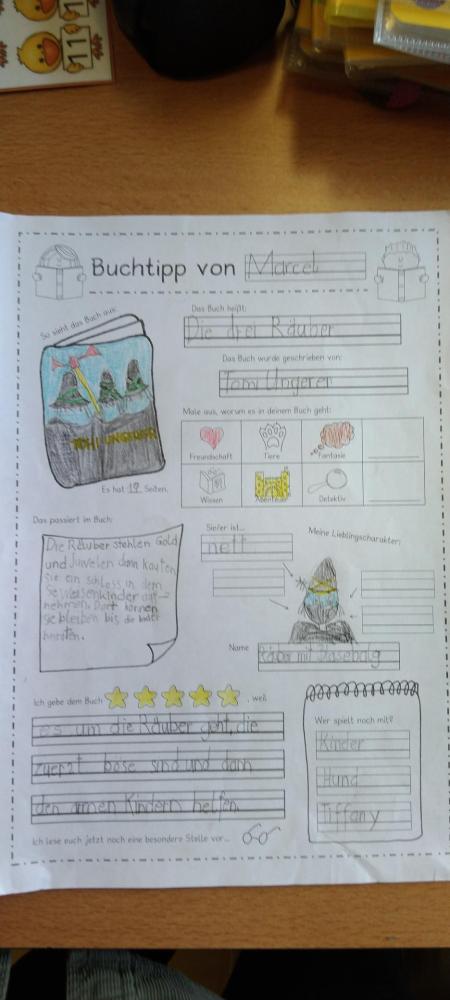 11
Buchtipp von Marcel
So sieht das Buch aus:
TOMI UNGERER
Es hat 19 Seiten.
Das Buch heißt:
Die drei Räuber
Das Buch wurde geschrieben von:
Tomi Ungerer
Male aus, worum es in deinem Buch geht:
Freundschaft Tiere Fantasie
Wissen Abenteuer Detektiv
Das passiert im Buch:
Die Räuber stehlen Gold
und Juwelen dann kauften
sie ein schloss, in dem
sie Waisenkinder auf-
nehmen. Dort können
sie bleiben bis die
heiraten.
Sie/er ist...
nett
Meine Lieblingscharakter:
Name Räuber mit Blasebalg
Ich gebe dem Buch , weil
es um die Räuber geht, die
zuerst böse sind und dann
den armen Kindern helfen.
Wer spielt noch mit?
Kinder
Hund
Tiffany
Ich lese euch jetzt noch eine besondere Stelle vor...